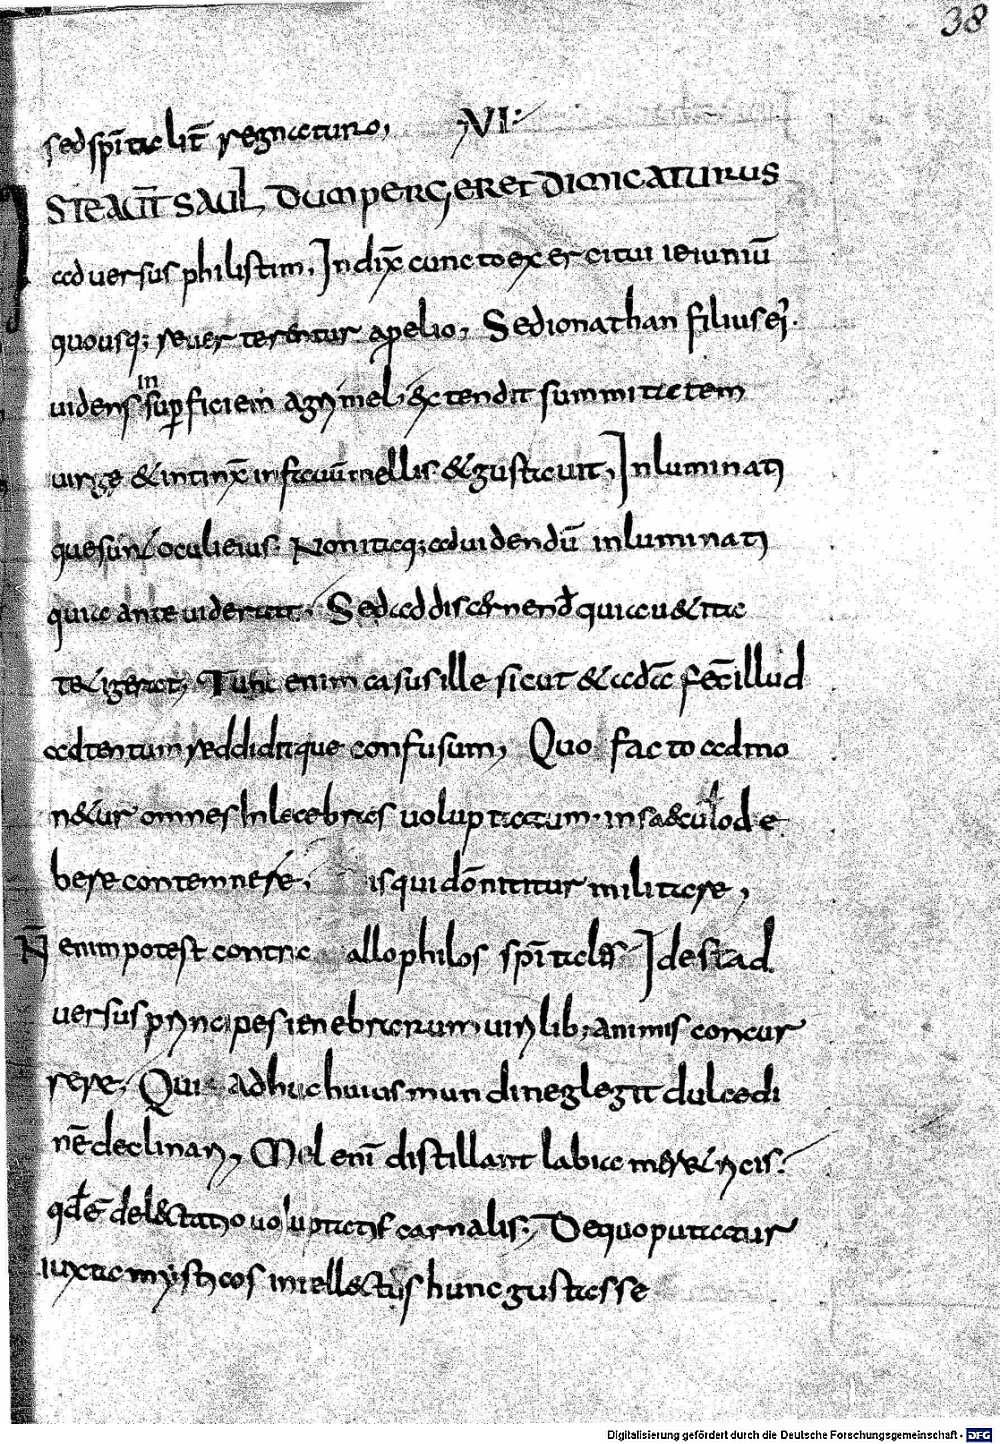 38
sed sp̄italit̄ regnaturo, ;VI:
ISTE AUT̄ SAUL, DUM PERGERET DIMICATURUS
aduersus philistim, Indix̄ cuncto exercitui ieiuniū
quousq; reuerterentur a p̄elio, Sed ionathan filius ei.
uidens in sup̄ficiem agri mel, & extendit summitatem
uirge & intinx̄ in fauū mellis & gustauit, Inluminati
que sunt oculi eius. Non itaq; ad uidendū inluminati
quia ante uiderat, Sed ad discernend̄ quia uetita
tetigerat, Tunc enim casus ille sicut & adā fec̄ illud
adtentum reddiditque confusum, Quo facto admo
netur omnes inlecebras uoluptatum in sæculo de
bere contemnere, is qui dō nititur militare,
N̄ enim potest contra allophilos sp̄itales Id est ad
uersus principes tenebrarum uirilib; animis concur
rere, Qui adhuc huius mundi neglegit dulcedi
nē declinari, Mel enī distillant labia meretricis.
qd̄ ē delectatio uoluptatis carnalis, De quo putatur
iuxta mysticos intellectus hunc gustasse
Digitalisierung gefördert durch die Deutsche Forschungsgemeinschaft - DFG